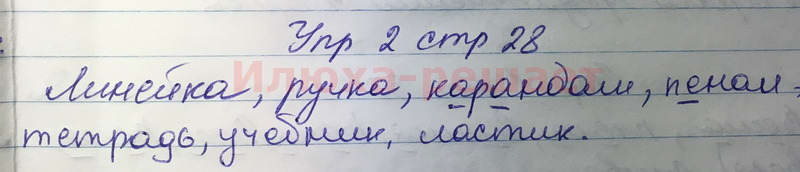 Упр 2 стр 28
Линейка, ручка, карандаш, пенал,
тетрадь, учебник, ластик.
Илюха-решает